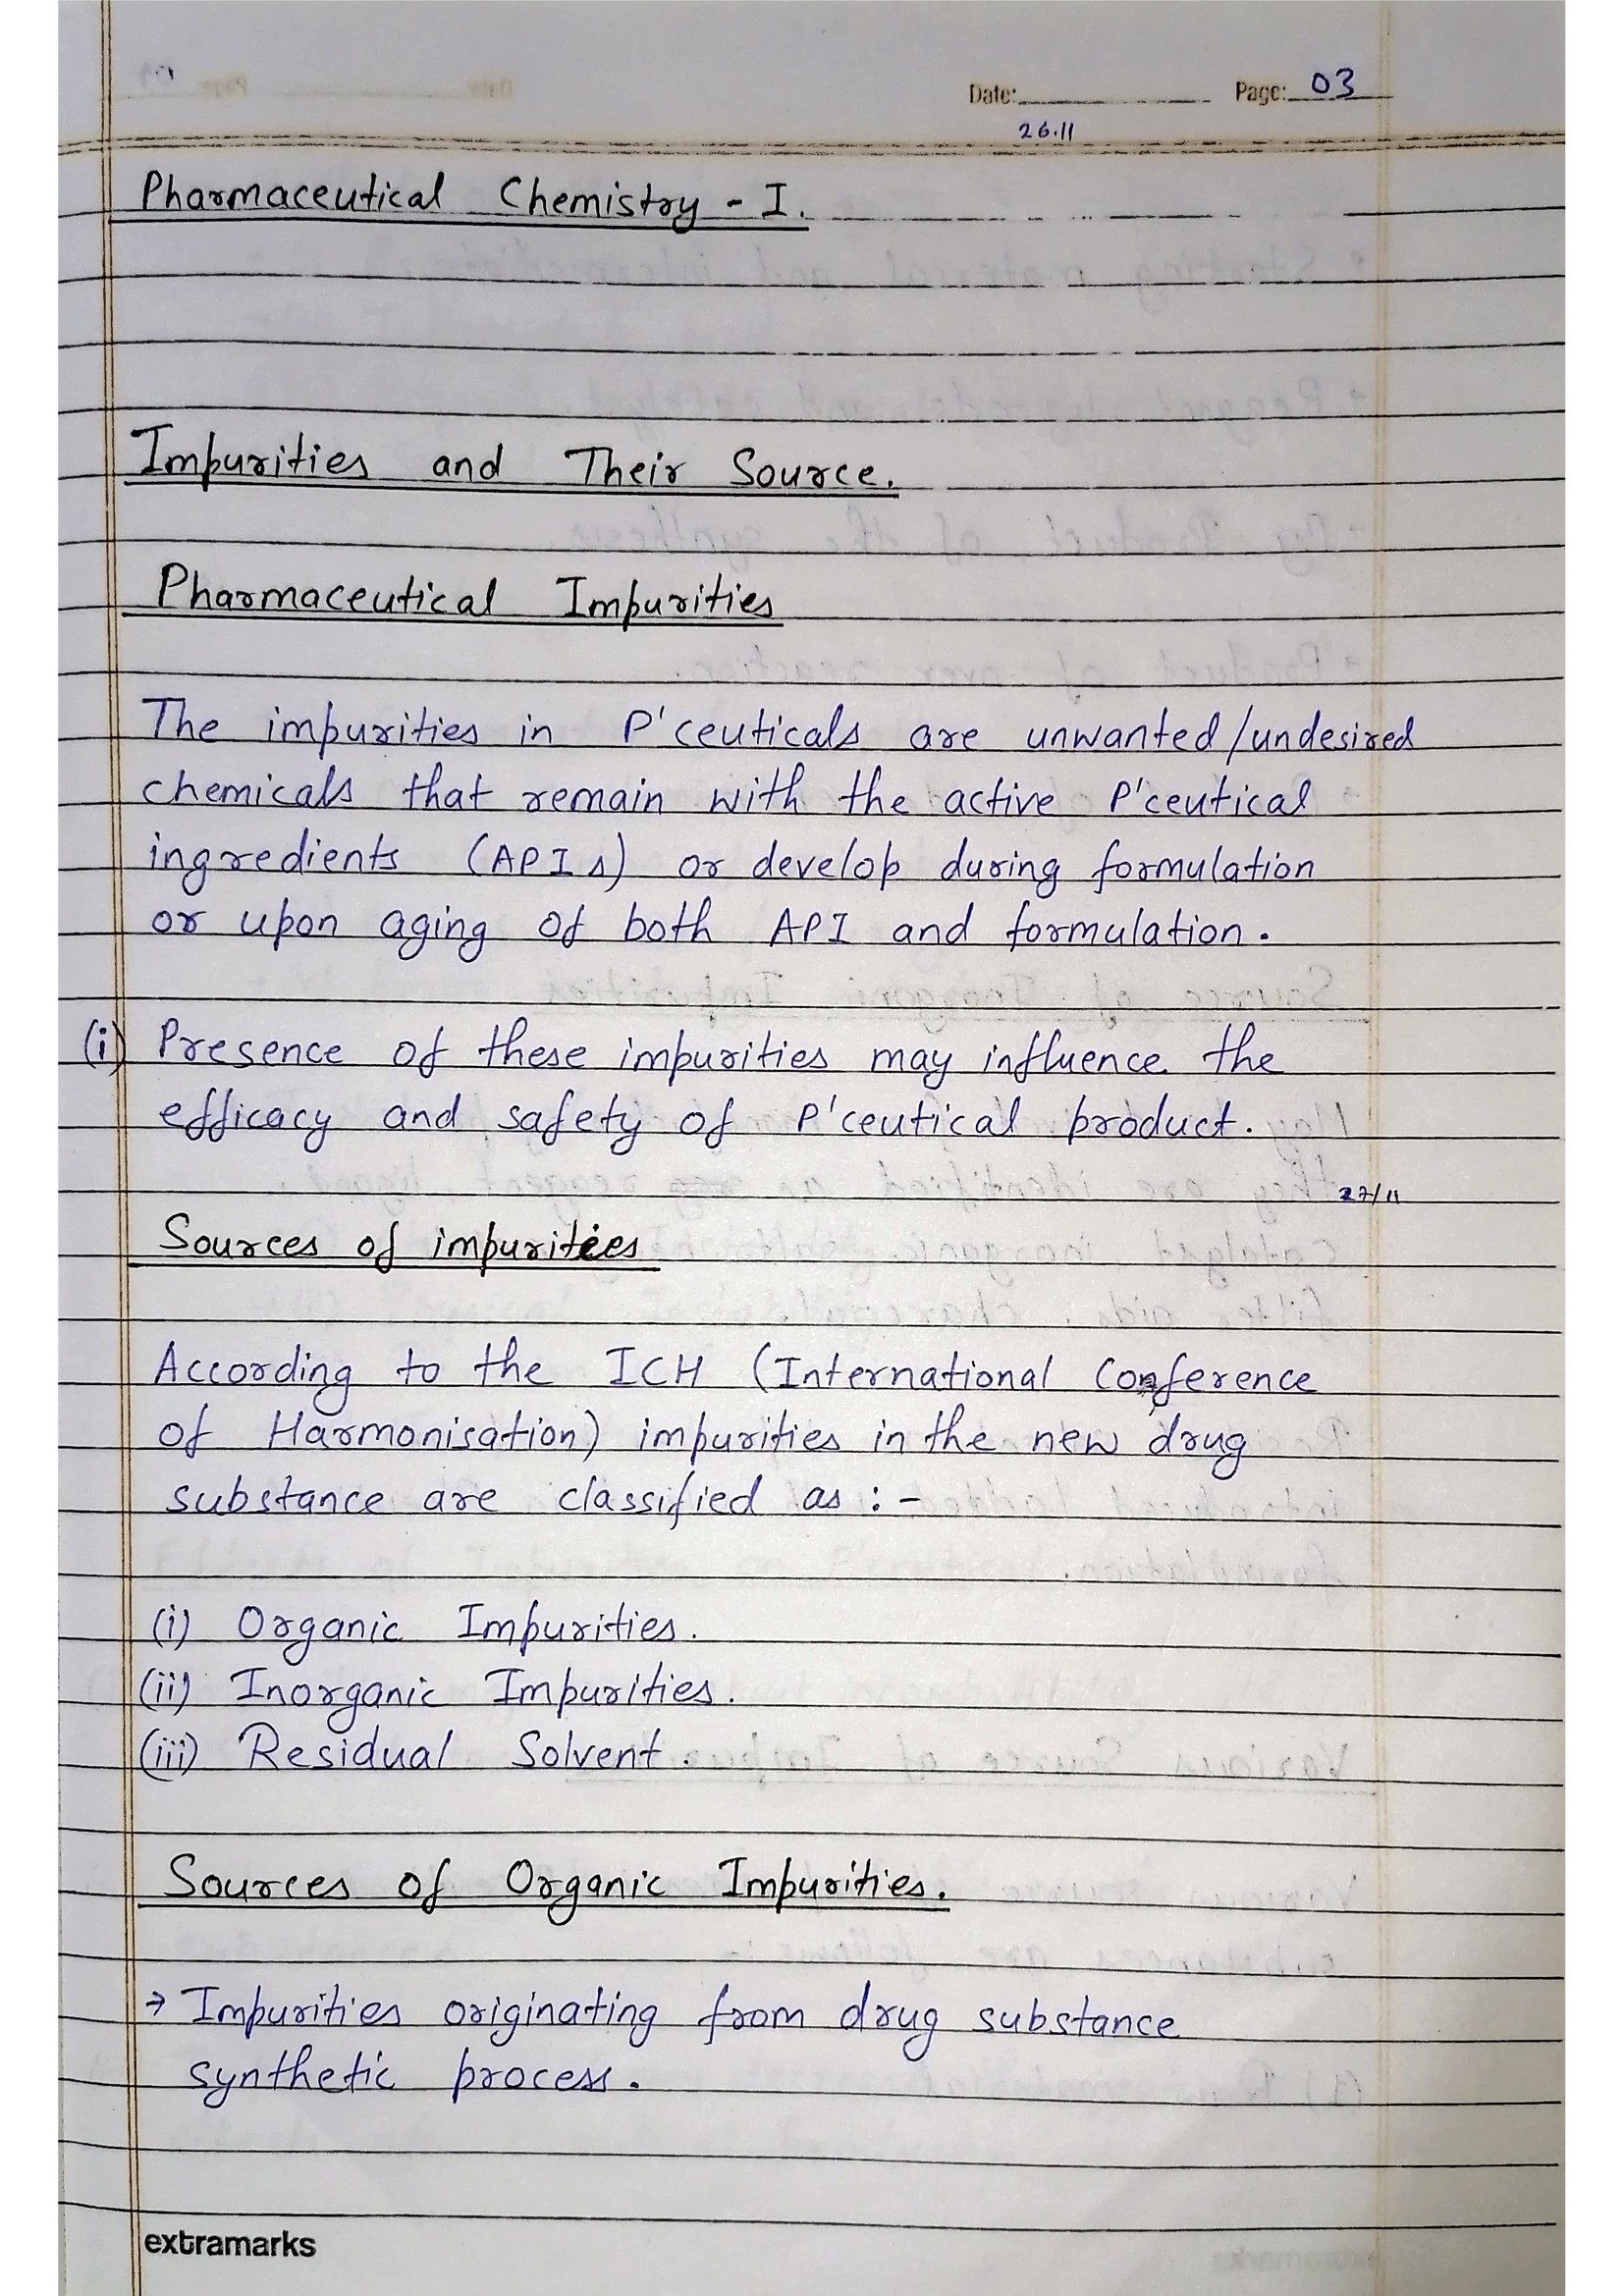 Date: Page: 03
26.11
Pharmaceutical Chemistry - I.
Impurities and Their Source.
Pharmaceutical Impurities
The impurities in P'ceuticals are unwanted/undesired
chemicals that remain with the active P'ceutical
ingredients (APIs) or develop during formulation
or upon aging of both API and formulation.
(i) Presence of these impurities may influence the
efficacy and safety of P'ceutical product.
27/11
Sources of impurities
According to the ICH (International Conference
of Harmonisation) impurities in the new drug
substance are classified as :-
(i) Organic Impurities.
(ii) Inorganic Impurities.
(iii) Residual Solvent.
Sources of Organic Impurities.
→ Impurities originating from drug substance
synthetic process.
extramarks